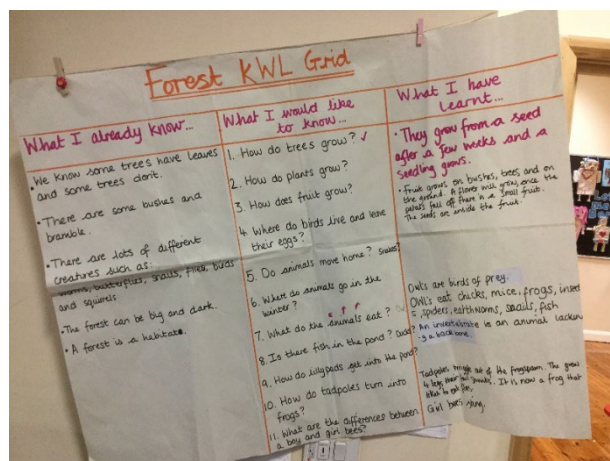 Forest KWL Grid
What I already know...
• We know some trees have leaves
and some trees don't.
• There are some bushes and
bramble.
• There are lots of different
creatures such as:
worms, butterflies, snails, flies, birds
and squirrels
• The forest can be big and dark.
• A forest is a habitat.
What I would like
to know...
1. How do trees grow? ✓
2. How do plants grow?
3. How does fruit grow?
4. Where do birds live and leave
their eggs?
5. Do animals move home?
6. Where do animals go in the
winter?
7. What do the animals eat?
8. Is there fish in the pond?
9. How do lillypads get into the pond?
10. How do tadpoles turn into
frogs?
11. What are the differences between
a boy and girl bees?
What I have
learnt...
• They grow from a seed
after a few weeks and a
seedling grows.
• Fruit grows on bushes, trees, and on
the ground. A flower will grow, once the
petals fall off there is a small fruit.
The seeds are inside the fruit.
Owls are birds of prey.
Owl's eat chicks, mice, frogs, insects
, spiders, earthworms, snails, fish
An invertebrate is an animal lacking
a backbone.
Tadpoles out of the frogspawn. The grow
4 legs. It is now a frog that
likes to eat flies.
Girl bees sting.